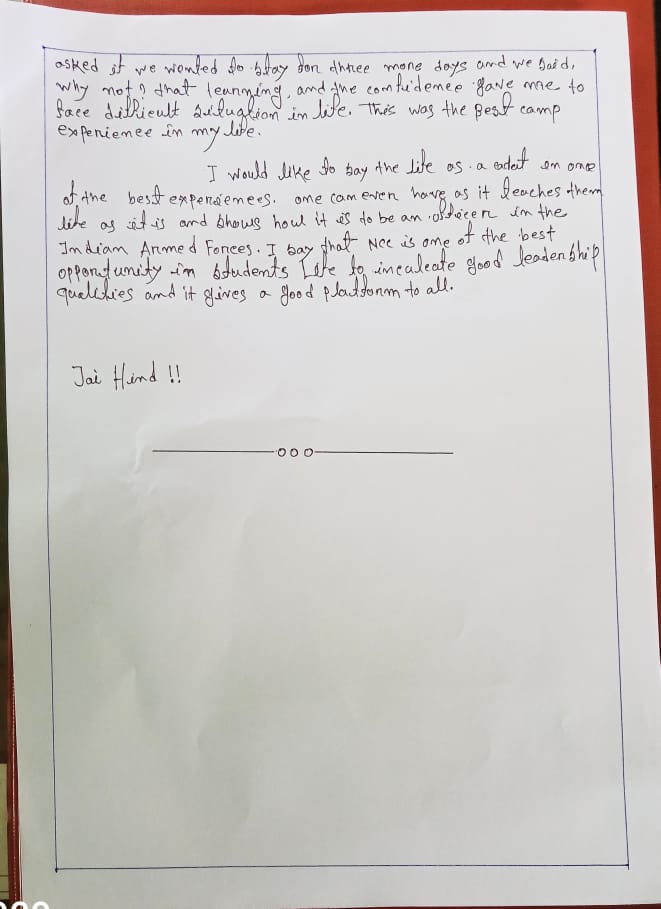 asked if we wonted to stay for three more days and we said,
why not? that learnning, and the confidence gave me to
face difficult situation in life. This was the Best camp
experience in my life.
I would like to say the life as a cadet on one
of the best experiences. one can even have as it teaches them
life as it is and shows how it is to be an officer in the
Indian Armed Forces. I say that NCC is one of the best
opportunity in students Life to incalcate good leadership
qualities and it gives a good platform to all.
Jai Hind !!
ooo